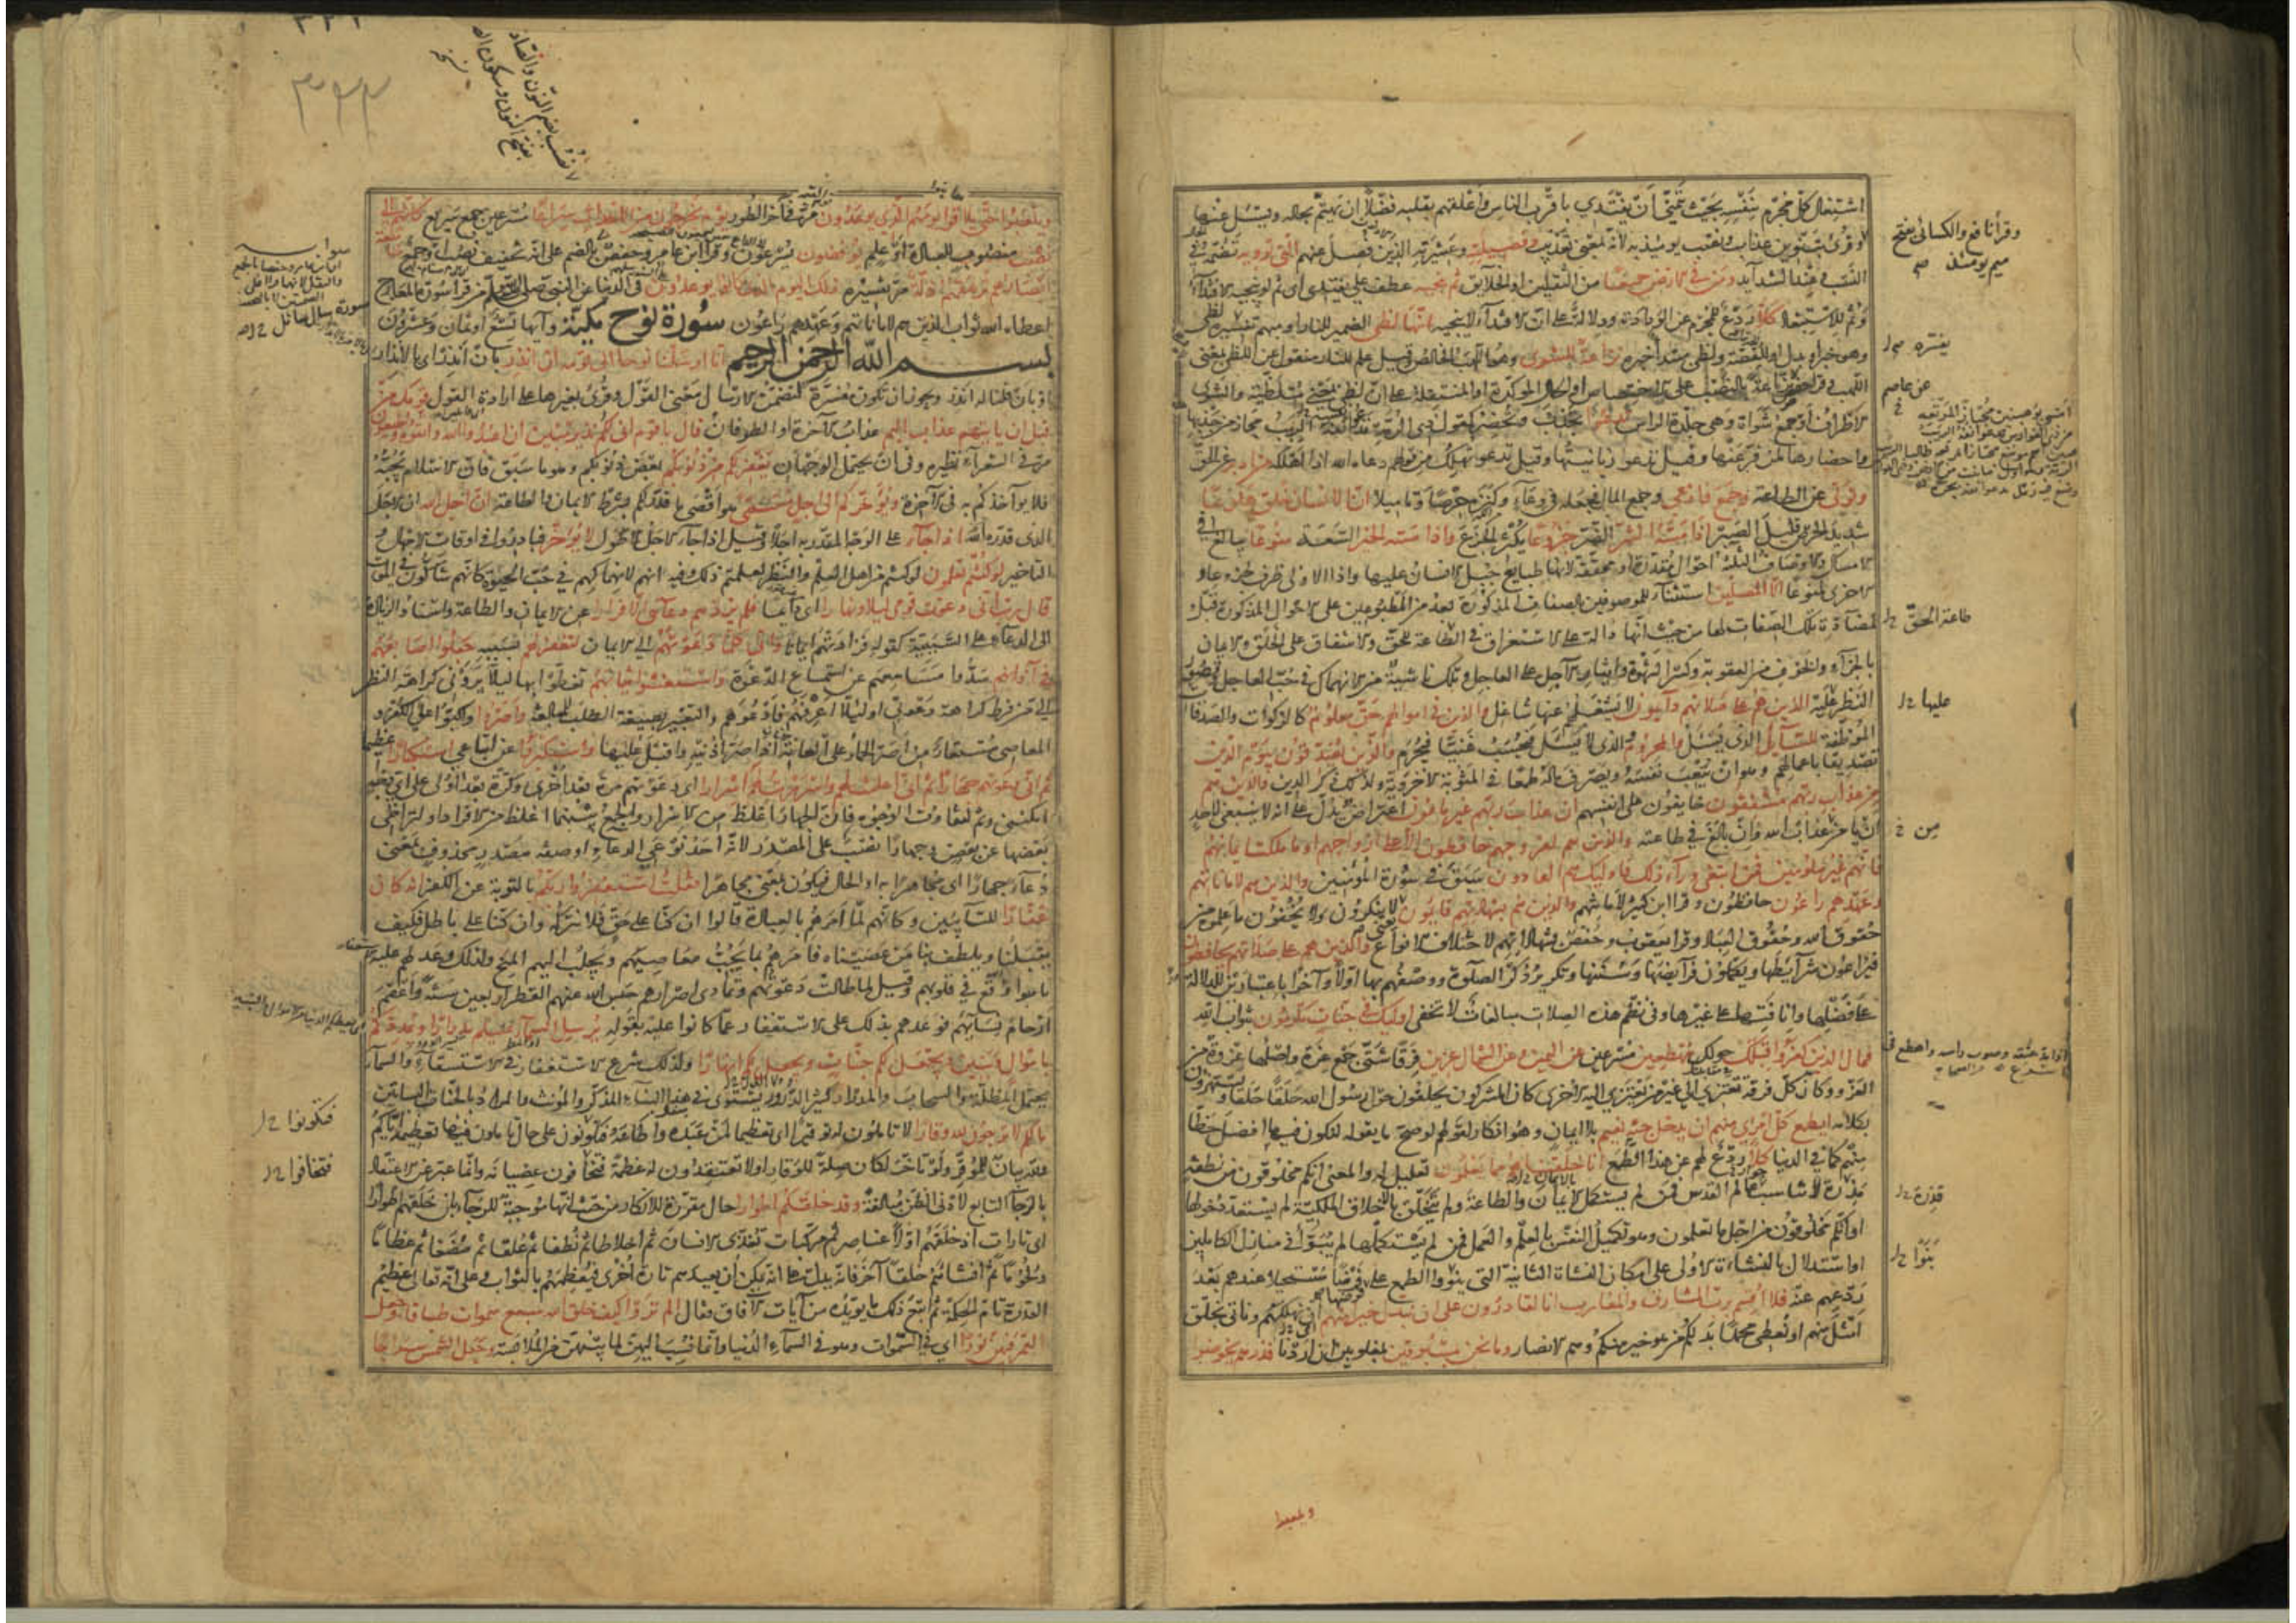 اشتغال كل مجرم بنفسه بحيث يتمنى أن يفتدي باقرب الناس وأعلقهم بقلبه فضلا ان يهتم بحاله ويسئل عنها
وقرئ بتنوين عذاب ونصب يومئذ به لانه بمعنى تعذيب وفصيلته وعشيرته الذين فصل عنهم التى تؤويه تضمه في
النسب او عند الشدآيد ومن في الارض جميعا من الثقلين او الخلايق ثم ينجيه عطف على يفتدي أي ثم لو ينجيه الافتدآء
وثم للاستبعاد كلا ردع للمجرم عن الودادة ودلالة على ان الافتدآء لا ينجيه انها لظى الضمير للنار او مبهم تفسيره لظى
وهو خبر او بدل او للقصة ولظى مبتدأ خبره نزاعة للشوى وهو اللهب الخالص وقيل علم للنار منقول عن اللظى بمعنى
اللهب وقرأ حفص نزاعة بالنصب على الاختصاص او الحال المؤكدة او المنتقلة على ان لظى بمعنى متلظية والشوى
الاطراف أو جمع شواة وهى جلدة الراس تدعوا تجذب وتحضر كقول ذى الرمة تدعو انفه الريب مجاز عن جذبها
واحضارها لمن فر عنها وقيل تدعو زبانيتها وقيل تدعو تهلك من قولهم دعاه الله اذا اهلكه من ادبر عن الحق
وتولى عن الطاعة وجمع فاوعى وجمع المال فجعله في وعآء وكنزه حرصا وتاميلا ان الانسان خلق هلوعا
شديد الحرص قليل الصبر اذا مسه الشر الضر جزوعا يكثر الجزع واذا مسه الخير السعة منوعا يبالغ في
الامساك والاوصاف الثلثة احوال مقدرة او محققة لانها طبايع جبل الانسان عليها واذا الاولى ظرف لجزوعا و
الاخرى لمنوعا الا المصلين استثنآء للموصوفين بالصفات المذكورة بعد من المطبوعين على الاحوال المذكورة قبل
لمضآدة تلك الصفات لها من حيث انها دالة على الاستغراق في الطاعة للحق والاشفاق على الخلق والايمان
بالجزآء والخوف من العقوبة وكسر الشهوة وايثار الآجل على العاجل وتلك ناشية من الانهماك في حب العاجل وقصور
النظر عليه الذين هم على صلاتهم دآيمون لا يشغلهم عنها شاغل والذين في اموالهم حق معلوم كالزكوات والصدقات
الموظفة للسآيل الذي يسئل والمحروم والذي لا يسئل فيحسب غنيا فيحرم والذين يصدقون بيوم الدين
تصديقا باعمالهم وهو ان يتعب نفسه ويصرف ماله طمعا في المثوبة الاخروية ولذلك ذكر الدين والذين هم
من عذاب ربهم مشفقون خايفون على انفسهم ان عذاب ربهم غير مامون اعتراض يدل على انه لا ينبغى لاحد
ان يامن عذاب الله وان بالغ في طاعته والذين هم لفروجهم حافظون الا على ازواجهم او ما ملكت ايمانهم
فانهم غير ملومين فمن ابتغى ورآء ذلك فاوليك هم العادون سبق في سورة المؤمنين والذين هم لاماناتهم
وعهدهم راعون حافظون وقرا ابن كثير لامانتهم والذين هم بشهادتهم قايمون لا ينكرون ولا يخفون ما علموه من
حقوق الله وحقوق العباد وقرا يعقوب وحفص بشهاداتهم لاختلاف الانواع والذين هم على صلاتهم يحافظون
فيراعون شرآيطها ويكملون فرآيضها وسننها وتكرير ذكر الصلوة ووصفهم بها اولا وآخرا باعتبارين للدلالة
على فضلها وانافتها على غيرها وفى نظم هذه الصلات مبالغات لا تخفى اوليك في جنات مكرمون بثواب الله
فمال الذين كفروا قبلك حولك مهطعين مسرعين عن اليمين وعن الشمال عزين فرقا شتى جمع عزة واصلها عزوة من
العزو وكان كل فرقة تعتزي الى غير من تعتزي اليه الاخرى كان المشركون يحلقون حول رسول الله حلقا حلقا ويستهزؤن
بكلامه ايطمع كل امرئ منهم ان يدخل جنة نعيم بلا ايمان وهو انكار لقولهم لو صح ما يقوله لنكون فيها افضل حظا
منهم كما في الدنيا كلا ردع لهم عن هذا الطمع انا خلقناهم مما يعلمون تعليل له والمعنى انكم مخلوقون من نطفة
مذرة لا تناسب عالم القدس فمن لم يستكمل بالايمان والطاعة ولم يتخلق بالاخلاق الملكية لم يستعد دخولها
او انكم مخلوقون من اجل ما تعلمون وهو تكميل النفس بالعلم والعمل فمن لم يستكملها لم يبوأ في منازل الكاملين
او استدلال بالنشاءة الاولى على امكان النشاة الثانية التى بنوا الطمع على فرضها فرضا مستحيلا عندهم بعد
ردعهم عنه فلا اقسم برب المشارق والمغارب انا لقادرون على ان نبدل خيرا منهم أى نهلكهم وناتى بخلق
امثل منهم او نعطى محمدا بدلكم من هو خير منكم وهم الانصار وما نحن بمسبوقين بمغلوبين ان اردنا فذرهم يخوضوا
ويلعبوا
وقرأ نافع والكسائى بفتح
ميم يومئذ
عن عاصم
طاعة الحق
عليها
من
قذرة
بنوا
ويلعبوا حتى يلاقوا يومهم الذي يوعدون مر في آخر الطور يوم يخرجون من الاجداث سراعا مسرعين جمع سريع كانهم الى
نصب منصوب للعبادة او علم يوفضون يسرعون وقرا ابن عامر وحفص بالضم على انه تخفيف نصب او جمع
ابصارهم ترهقهم ذلة مر تفسيره ذلك اليوم الذى كانوا يوعدون في الدنيا عن النبى صلى الله عليه وسلم من قرا سورة المعارج
اعطاه الله ثواب الذين هم لاماناتهم وعهدهم راعون سورة نوح مكية وآيها تسع او ثمان وعشرون
بسم الله الرحمن الرحيم انا ارسلنا نوحا الى قومه ان انذر بان انذر اى بالانذار
او بان قلنا له انذر ويجوز ان تكون مفسرة لتضمن الارسال معنى القول وقرئ بغيرها على ارادة القول قومك من
قبل ان ياتيهم عذاب اليم عذاب الآخرة او الطوفان قال يا قوم انى لكم نذير مبين ان اعبدوا الله واتقوه واطيعون
مر في الشعرآء نظيره وفى ان يحتمل الوجهان يغفر لكم من ذنوبكم بعض ذنوبكم وهو ما سبق فان الاسلام يجبه
فلا يوآخذكم به فى الآخرة ويؤخركم الى اجل مسمى هو اقصى ما قدر لكم بشرط الايمان والطاعة ان اجل الله ان الاجل
الذى قدره الله اذا جآء على الوجه المقدر به اجلا وقيل اذا جآء الاجل الاطول لا يؤخر فبادروا في اوقات الامهال و
التاخير لو كنتم تعلمون لو كنتم من اهل العلم والنظر لعلمتم ذلك وفيه انهم لانهماكهم في حب الحيوة كانهم شاكون في الموت
قال رب انى دعوت قومى ليلا ونهارا اى دآئما فلم يزدهم دعآئى الا فرارا عن الايمان والطاعة واسناد الزيادة
الى الدعآء على السببية كقوله فزادتهم ايمانا وانى كلما دعوتهم الى الايمان لتغفر لهم بسببه جعلوا اصابعهم
في آذانهم سدوا مسامعهم عن استماع الدعوة واستغشوا ثيابهم تغطوا بها ليلا يرونى كراهة النظر
الي من فرط كراهة دعوتى او ليلا اعرفهم فادعوهم والتعبير بصيغة الطلب للمبالغة واصروا واكبوا على الكفر و
المعاصى مستعار من اصر الحمار على العانة اذا صر اذنيه واقبل عليها واستكبروا عن اتباعى استكبارا عظيما
ثم انى دعوتهم جهارا ثم انى اعلنت لهم واسررت لهم اسرارا اى دعوتهم مرة بعد اخرى وكرة بعد اولى على اى وجه
امكننى وثم لتفاوت الوجوه فان الجهار اغلظ من الاسرار والجمع بينهما اغلظ من الافراد او لتراخى
بعضها عن بعض وجهارا نصب على المصدر لانه احد نوعي الدعآء او صفة مصدر محذوف بمعنى
دعآء جهارا اى مجاهرا به او الحال فيكون بمعنى مجاهرا فقلت استغفروا ربكم بالتوبة عن الكفر انه كان
غفارا للتآيبين وكانهم لما امرهم بالعبادة قالوا ان كنا على حق فلا نتركه وان كنا على باطل فكيف
يقبلنا ويلطف بنا من عصيناه فامرهم بما يجب معاصيهم ويجلب اليهم المنح ولذلك وعد لهم عليه
ما هو اوقع في قلوبهم وقيل لما طالت دعوتهم وتمادى اصرارهم حبس الله عنهم القطر اربعين سنة واعقم
ارحام نسآئهم فوعدهم بذلك على الاستغفار عما كانوا عليه بقوله يرسل السمآء عليكم مدرارا ويمددكم
باموال وبنين ويجعل لكم جنات ويجعل لكم انهارا ولذلك شرع الاستغفار في الاستسقآء والسمآء
يحتمل المظلة والسحاب والمدرار كثير الدرور يستوى في هذا البنآء المذكر والمؤنث والمراد بالجنات البساتين
ما لكم لا ترجون لله وقارا لا تاملون له توقيرا اى تعظيما لمن عبده واطاعه فتكونون على حال تاملون فيها تعظيمه اياكم
ولله بيان للموقر ولو تاخر لكان صلة للوقار او لا تعتقدون له عظمة فتخافون عصيانه وانما عبر عن الاعتقاد
بالرجآء التابع لادنى الظن مبالغة وقد خلقكم اطوارا حال مقررة للانكار من حيث انها موجبة للرجآء بان خلقهم اطوارا
اى تارات اذ خلقهم اولا عناصر ثم مركبات تغذى الانسان ثم اخلاطا ثم نطفا ثم علقا ثم مضغا ثم عظاما
ولحوما ثم انشاهم خلقا آخر فانه يدل على انه يمكن ان يعيدهم تارة اخرى فيعظمهم بالثواب وعلى انه تعالى عظيم
القدرة تام الحكمة ثم اتبع ذلك ما يؤيده من آيات الآفاق فقال الم تروا كيف خلق الله سبع سموات طباقا وجعل
القمر فيهن نورا اي في السموات وهو في السمآء الدنيا وانما نسب اليهن لما بينهن من الملابسة وجعل الشمس سراجا
بضم النون والصاد
بفتح النون وسكون الصاد
سورة سال سائل
فتكونوا
فتخافوا